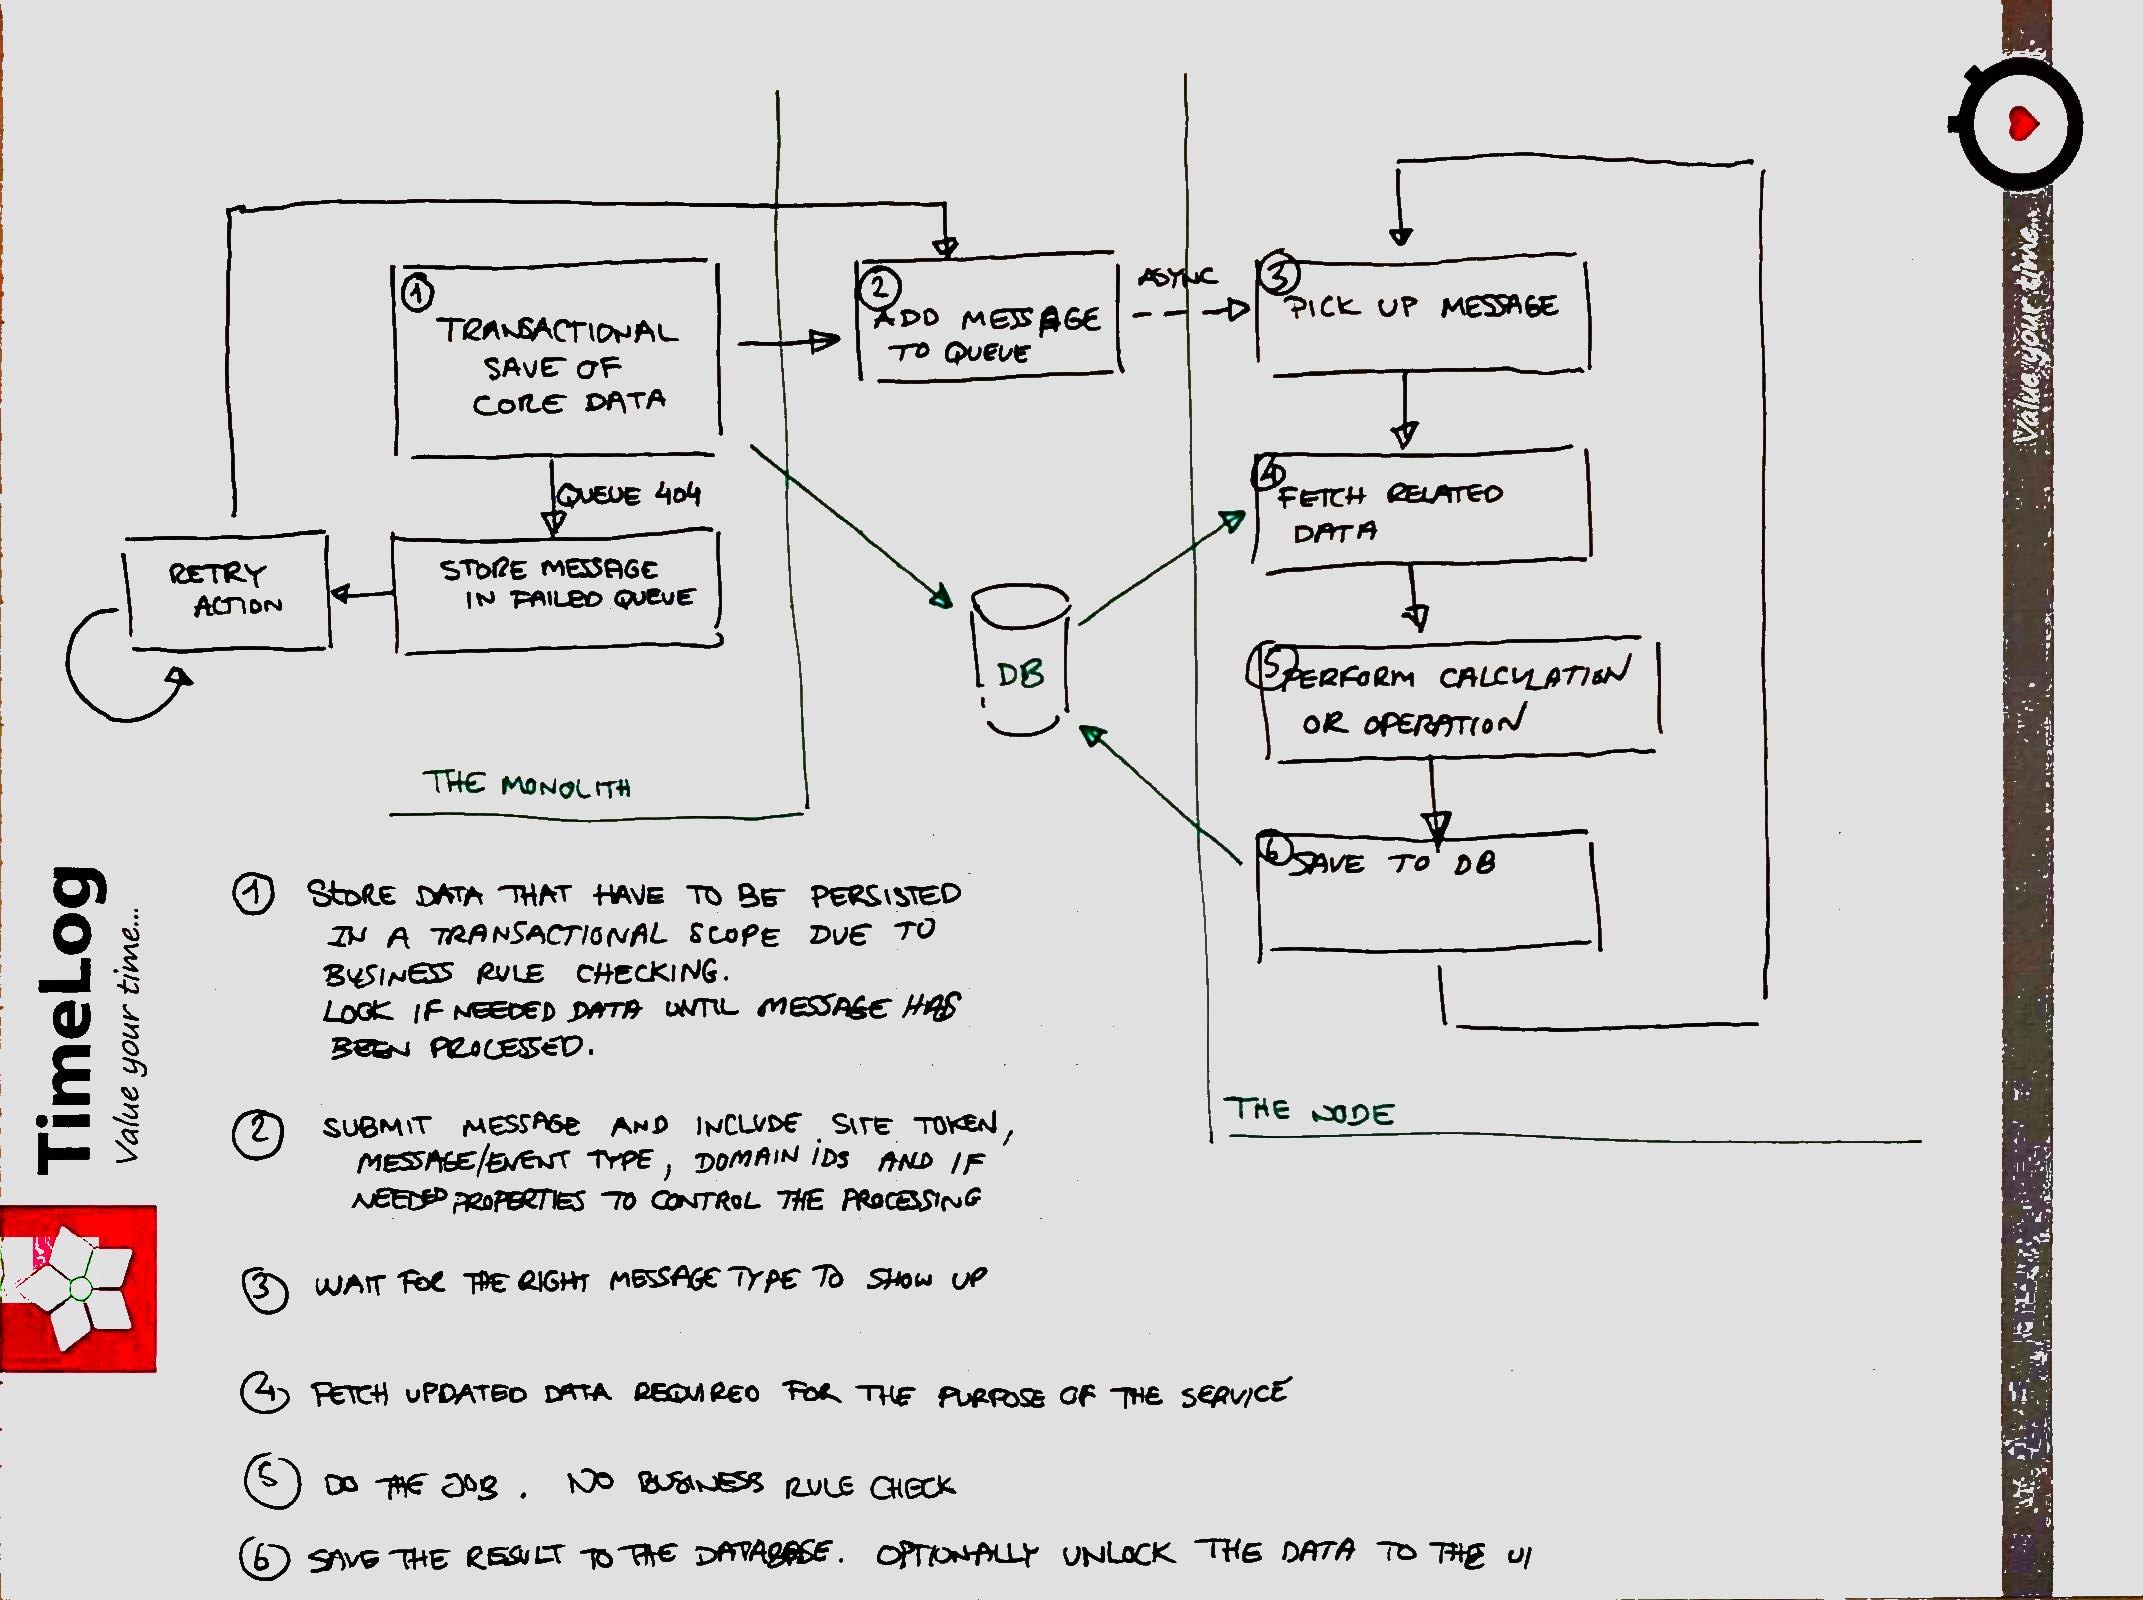 ①
TRANSACTIONAL
SAVE OF
CORE DATA
QUEUE 404
STORE MESSAGE
IN FAILED QUEUE
RETRY
ACTION
THE MONOLITH
②
ADD MESSAGE
TO QUEUE
ASYNC
DB
③
PICK UP MESSAGE
④
FETCH RELATED
DATA
⑤
PERFORM CALCULATION
OR OPERATION
⑥
SAVE TO DB
THE NODE
① STORE DATA THAT HAVE TO BE PERSISTED
IN A TRANSACTIONAL SCOPE DUE TO
BUSINESS RULE CHECKING.
LOCK IF NEEDED DATA UNTIL MESSAGE HAS
BEEN PROCESSED.
② SUBMIT MESSAGE AND INCLUDE SITE TOKEN,
MESSAGE/EVENT TYPE, DOMAIN IDS AND IF
NEEDED PROPERTIES TO CONTROL THE PROCESSING
③ WAIT FOR THE RIGHT MESSAGE TYPE TO SHOW UP
④ FETCH UPDATED DATA REQUIRED FOR THE PURPOSE OF THE SERVICE
⑤ DO THE JOB. NO BUSINESS RULE CHECK
⑥ SAVE THE RESULT TO THE DATABASE. OPTIONALLY UNLOCK THE DATA TO THE UI
TimeLog
Value your time...
Value your time...